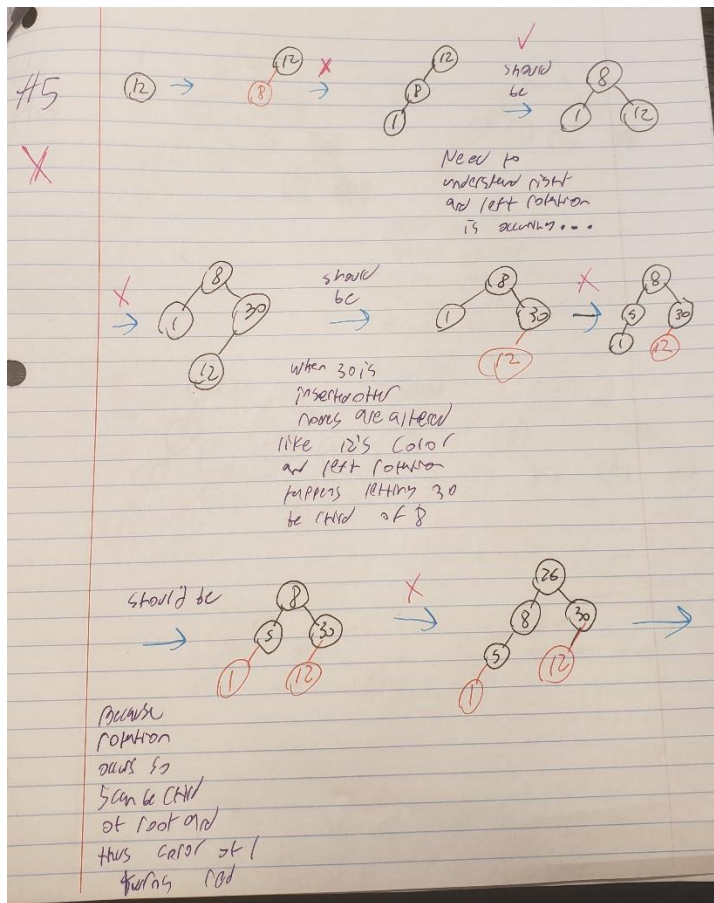 #5
12 → 12 8 X → 12 8 1 ✓ should be → 8 1 12
X
Need to
understand right
and left rotation
is occuring...
X → 8 1 30 12 should be → 8 1 30 12 X → 8 5 30 1 12
when 30 is
inserted other
nodes are altered
like 12's color
and left rotation
happens letting 30
be child of 8
should be → 8 5 30 1 12 X → 26 8 30 5 12 1 →
Because
rotation
occurs so
5 can be child
of root and
thus color of 1
turns red